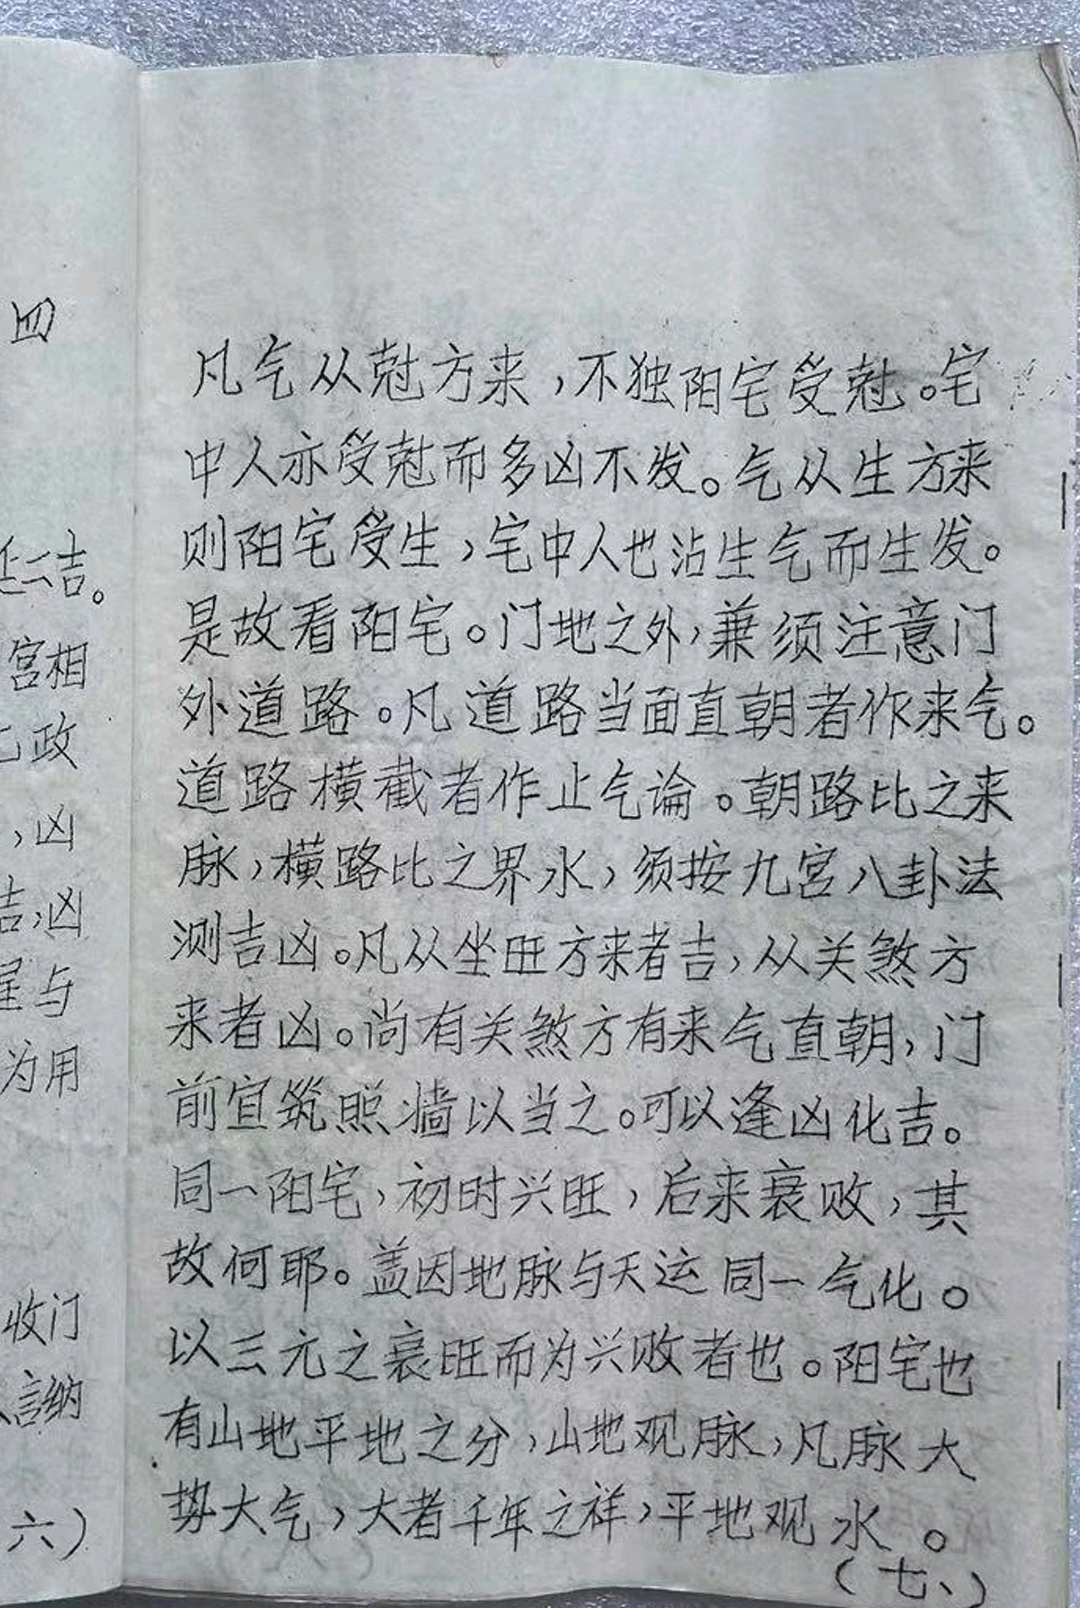 凡气从尅方来，不独阳宅受尅。宅
中人亦受尅而多凶不发。气从生方来
则阳宅受生，宅中人也沾生气而生发。
是故看阳宅。门地之外，兼须注意门
外道路。凡道路当面直朝者作来气。
道路横截者作止气论。朝路比之来
脉，横路比之界水，须按九宫八卦法
测吉凶。凡从坐旺方来者吉，从关煞方
来者凶。尚有关煞方有来气直朝，门
前宜筑照墙以当之。可以逢凶化吉。
同一阳宅，初时兴旺，后来衰败，其
故何耶。盖因地脉与天运同一气化。
以三元之衰旺而为兴败者也。阳宅也
有山地平地之分，山地观脉，凡脉大
势大气，大者千年之祥，平地观水。
（七、）
四
云吉。
宫相
政
，凶
吉，凶
星与
为用
收门
言纳
六）